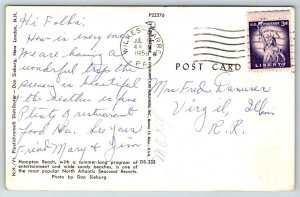 P22576
Hi Folks!
How is every one
We are having a
wonderful trip the
scenery is beautiful
the weather is fine
Plenty of restaurant
food Ha. See you
Friend Mary & Jim
WILKES-BARRE
JUL
1955
PA.
3¢
LIBERTY
POST CARD
Mrs Fred
Virgil, Ill
R.R.
Hampton Beach, with a summer-long program of
entertainment and wide sandy beaches, is one
of the most popular North Atlantic Seacoast Resorts.
Photo by Don Sieburg
DS-352
Don Sieburg, New London, N.H.